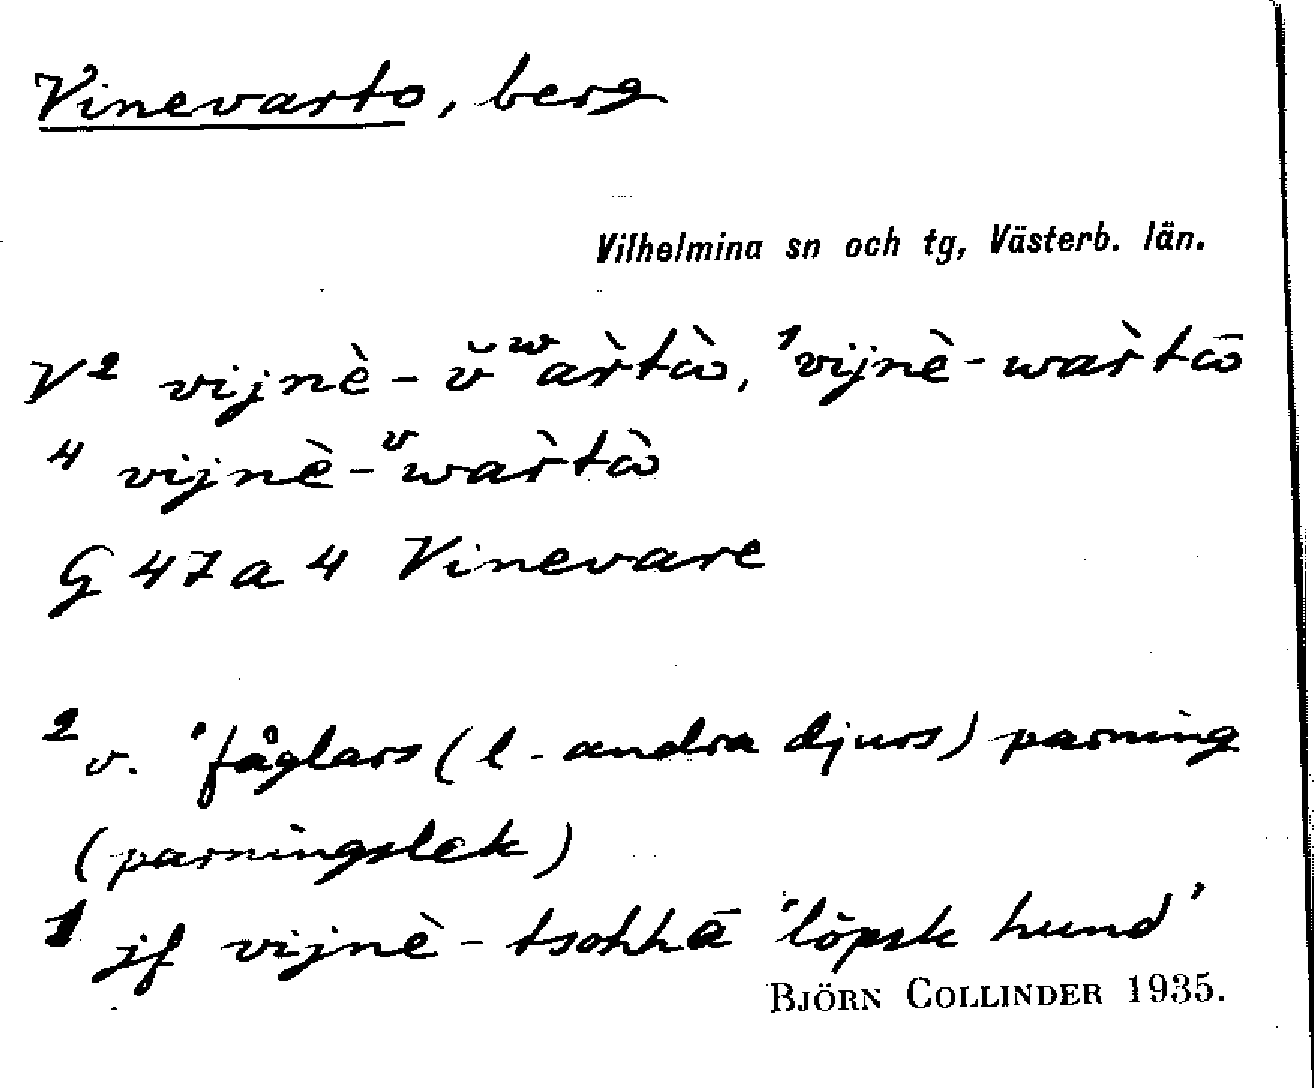 Vinevarto, berg
Vilhelmina sn och tg, Västerb. län.
V² vijnè-v̆ʷar̀tὼ, ¹vijnè-war̀tω̄
⁴ vijnè-ᵛ̆war̀tὼ
G 47 a 4 Vinevare
² v. 'fåglars (l. andra djurs) parning
(parningslek)
¹ jf vijnè-tsohkā 'löpsk hund'
BJÖRN COLLINDER 1935.